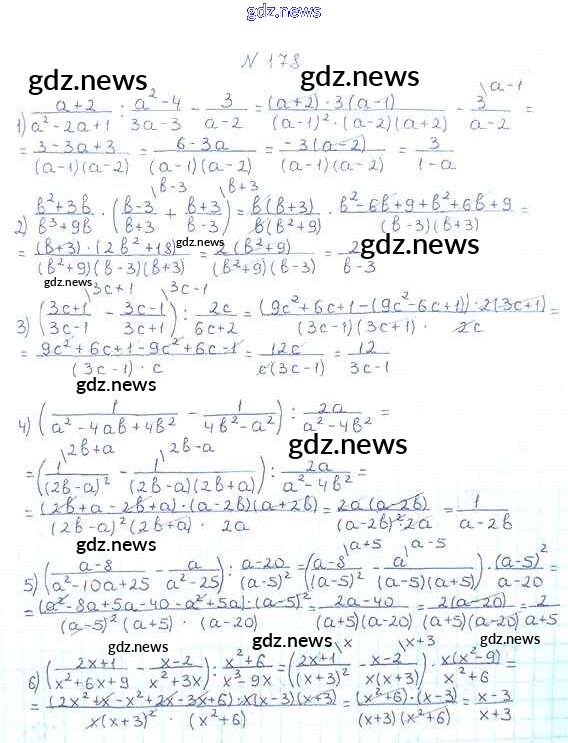 gdz.news
N 178
gdz.news gdz.news
1) (a+2)/(a²-2a+1) : (a²-4)/(3a-3) - 3/(a-2) = ((a+2)·3(a-1))/((a-1)²·(a-2)(a+2)) - 3\a-1/(a-2) =
= (3-3a+3)/((a-1)(a-2)) = (6-3a)/((a-1)(a-2)) = (-3(a-2))/((a-1)(a-2)) = 3/(1-a)
2) (b²+3b)/(b³+9b) · ((b-3)\b-3/(b+3) + (b+3)\b+3/(b-3)) = (b(b+3))/(b(b²+9)) · (b²-6b+9+b²+6b+9)/((b-3)(b+3)) =
= ((b+3)·(2b²+18))/((b²+9)(b-3)(b+3)) = (2(b²+9))/((b²+9)(b-3)) = 2/(b-3)
gdz.news gdz.news
gdz.news
3) ((3c+1)\3c+1/(3c-1) - (3c-1)\3c-1/(3c+1)) : 2c/(6c+2) = ((9c²+6c+1-(9c²-6c+1))·2(3c+1))/((3c-1)(3c+1)·2c) =
= (9c²+6c+1-9c²+6c-1)/((3c-1)·c) = 12c/(c(3c-1)) = 12/(3c-1)
gdz.news
4) (1/(a²-4ab+4b²) - 1/(4b²-a²)) : 2a/(a²-4b²) =
gdz.news
= (1\2b+a/((2b-a)²) - 1\2b-a/((2b-a)(2b+a))) : 2a/(a²-4b²) =
= ((2b+a-2b+a)·(a-2b)(a+2b))/((2b-a)²(2b+a)·2a) = (2a(a-2b))/((a-2b)²·2a) = 1/(a-2b)
gdz.news
5) ((a-8)/(a²-10a+25) - a/(a²-25)) : (a-20)/((a-5)²) = ((a-8)\a+5/((a-5)²) - a\a-5/((a-5)(a+5))) · ((a-5)²)/(a-20) =
= ((a²-8a+5a-40-a²+5a)·(a-5)²)/((a-5)²(a+5)·(a-20)) = (2a-40)/((a+5)(a-20)) = (2(a-20))/((a+5)(a-20)) = 2/(a+5)
gdz.news
6) ((2x+1)/(x²+6x+9) - (x-2)/(x²+3x)) : (x²+6)/(x³-9x) = ((2x+1)\x/((x+3)²) - (x-2)\x+3/(x(x+3))) · (x(x²-9))/(x²+6) =
= ((2x²+x-x²+2x-3x+6)·x(x-3)(x+3))/(x(x+3)²·(x²+6)) = ((x²+6)·(x-3))/((x+3)(x²+6)) = (x-3)/(x+3)
gdz.news